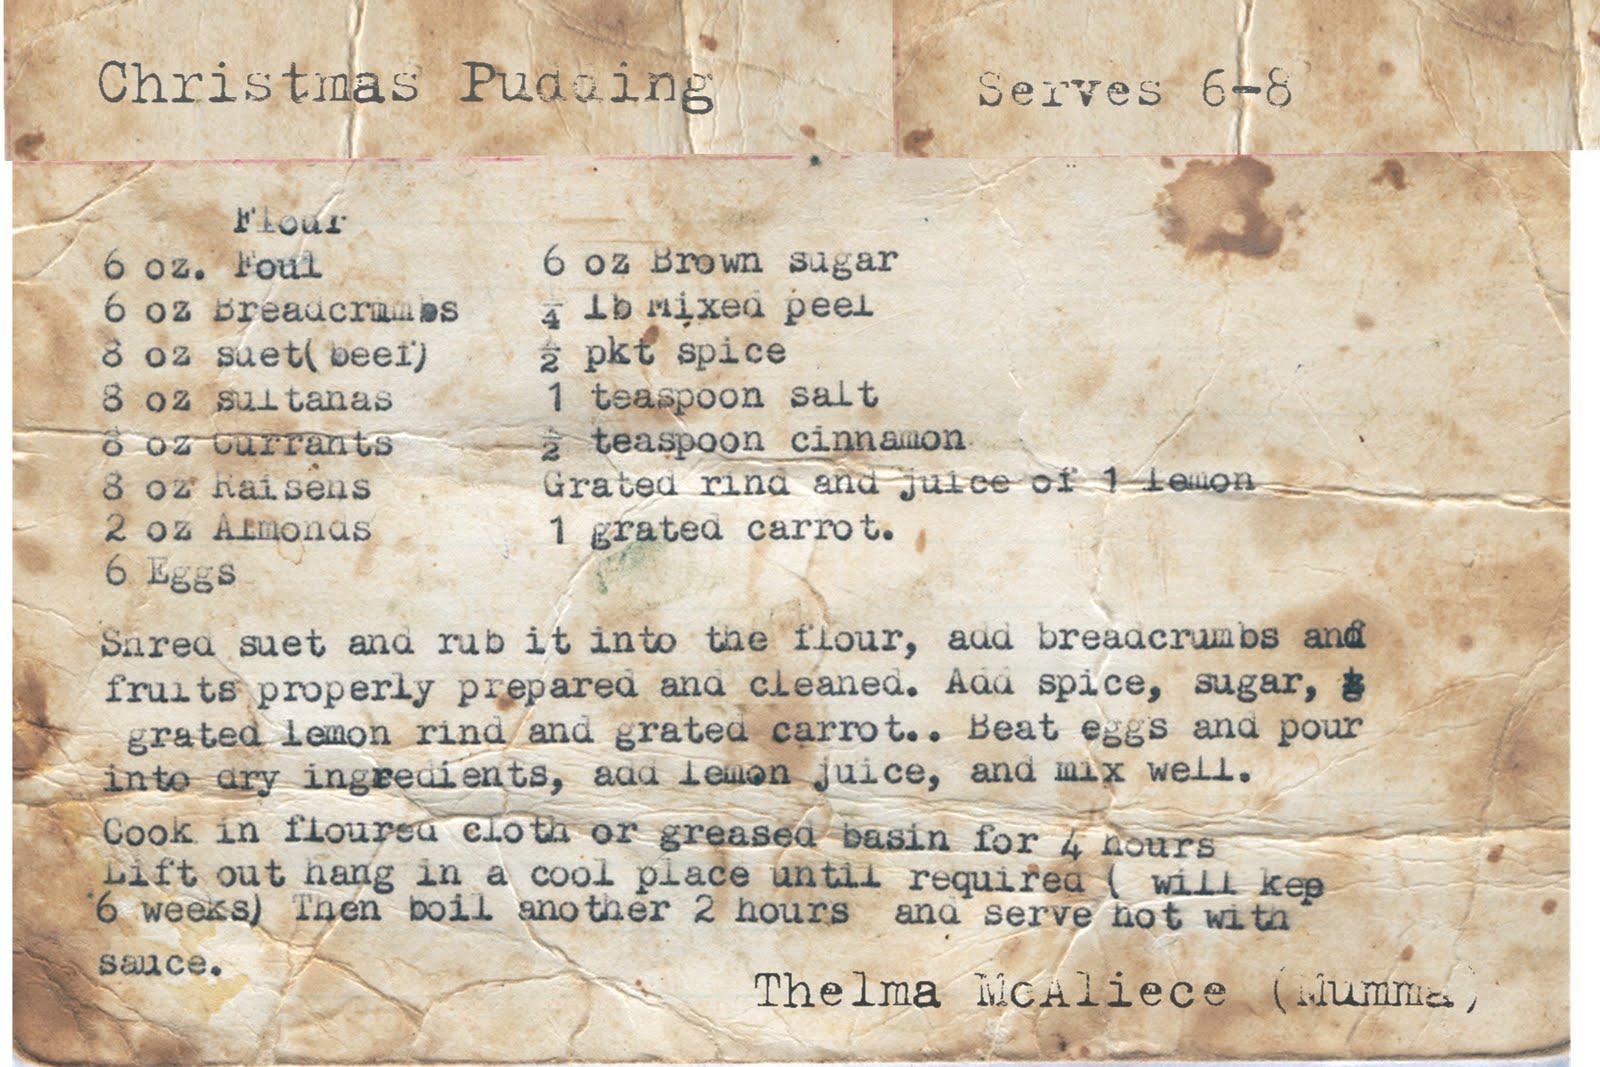 Christmas Pudding Serves 6-8
Flour
6 oz. Foul
6 oz Breadcrumbs
8 oz suet( beef)
8 oz sultanas
8 oz Currants
8 oz Raisens
2 oz Almonds
6 Eggs
6 oz Brown sugar
¼ lb Mixed peel
½ pkt spice
1 teaspoon salt
½ teaspoon cinnamon
Grated rind and juice of 1 lemon
1 grated carrot.
Shred suet and rub it into the flour, add breadcrumbs and
fruits properly prepared and cleaned. Add spice, sugar,
grated lemon rind and grated carrot.. Beat eggs and pour
into dry ingredients, add lemon juice, and mix well.
Cook in floured cloth or greased basin for 4 hours
Lift out hang in a cool place until required ( will kep
6 weeks) Then boil another 2 hours and serve hot with
sauce.
Thelma McAliece (Mumma)